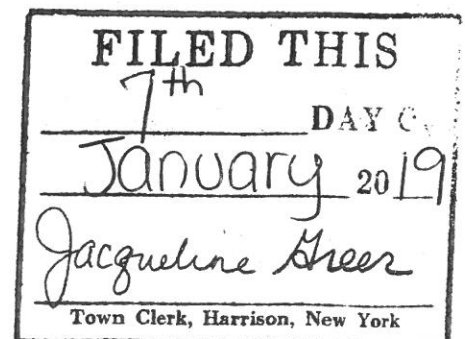 FILED THIS
7th
DAY O
January 2019
Jacqueline Greer
Town Clerk, Harrison, New York